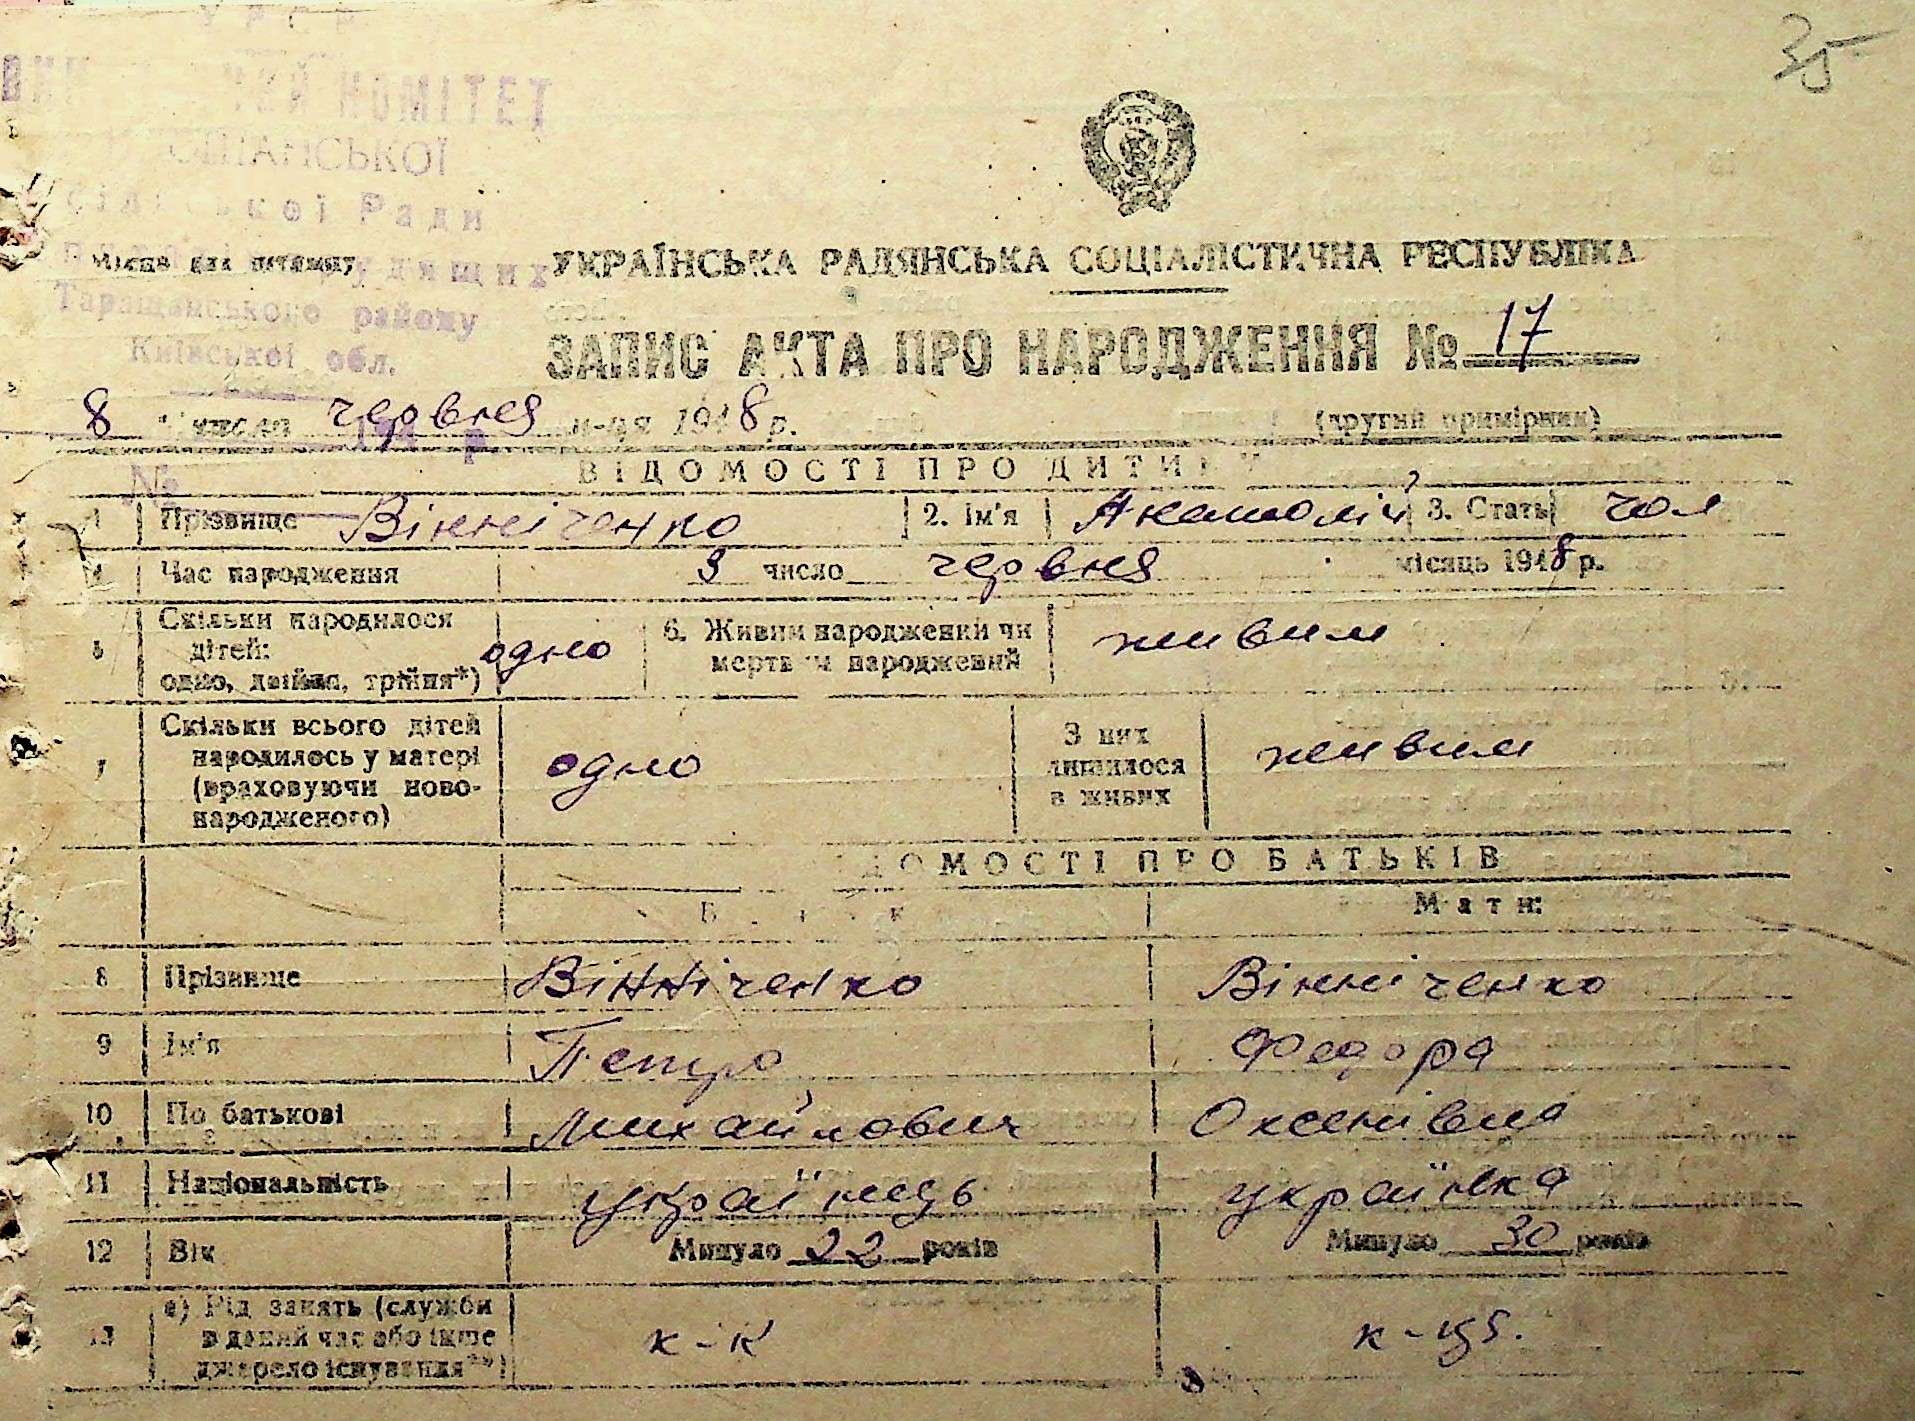 35
УРСР
КОМІТЕТ
Ради
Таращанського району
Київської обл.
Місце для штампу
УКРАЇНСЬКА РАДЯНСЬКА СОЦІАЛІСТИЧНА РЕСПУБЛІКА
ЗАПИС АКТА ПРО НАРОДЖЕННЯ № 17
8 " числа червня м-ця 1948 р.
(другий примірник)
№
ВІДОМОСТІ ПРО ДИТИНУ
1 Прізвище Вінніченко 2. Ім'я Анатолій 3. Стать чол
4 Час народження 3 число червня місяць 1948 р.
5 Скільки народилося дітей: одно, двійня, трійня*) одно 6. Живим народжений чи мертвим народжений живим
7 Скільки всього дітей народилось у матері (враховуючи новонародженого) одно З них лишилося в живих живим
ДОМОСТІ ПРО БАТЬКІВ
Мати:
8 Прізвище Вінніченко Вінніченко
9 Ім'я Петро Федора
10 По батькові Михайлович Оксенівна
11 Національність українець українка
12 Вік Минуло 22 років Минуло 30 років
13 а) Рід занять (служби в даний час або інше джерело існування**) к-к к-ця.